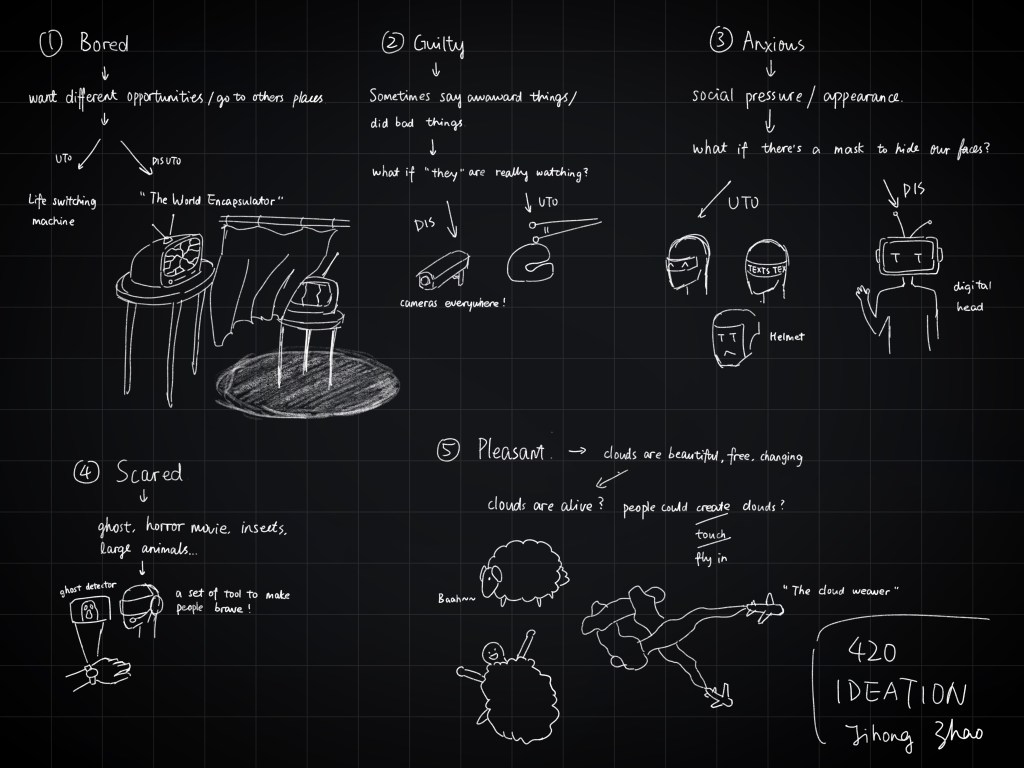 ① Bored
want different opportunities/go to others places
UTO
DISUTO
Life switching
machine
"The World Encapsulator"
② Guilty
Sometimes say awaward things/
did bad things.
what if "they" are really watching?
DIS
UTO
cameras everywhere!
③ Anxious
social pressure/appearance.
what if there's a mask to hide our faces?
UTO
DIS
TEXTS TEX
Helmet
digital
head
④ Scared
ghost, horror movie, insects,
large animals...
ghost detector
a set of tool to make
people brave!
⑤ Pleasant. → clouds are beautiful, free, changing
clouds are alive?
people could create clouds?
touch
fly in
Baahnn
"The cloud weaver"
420
IDEATION
Jihong Zhao